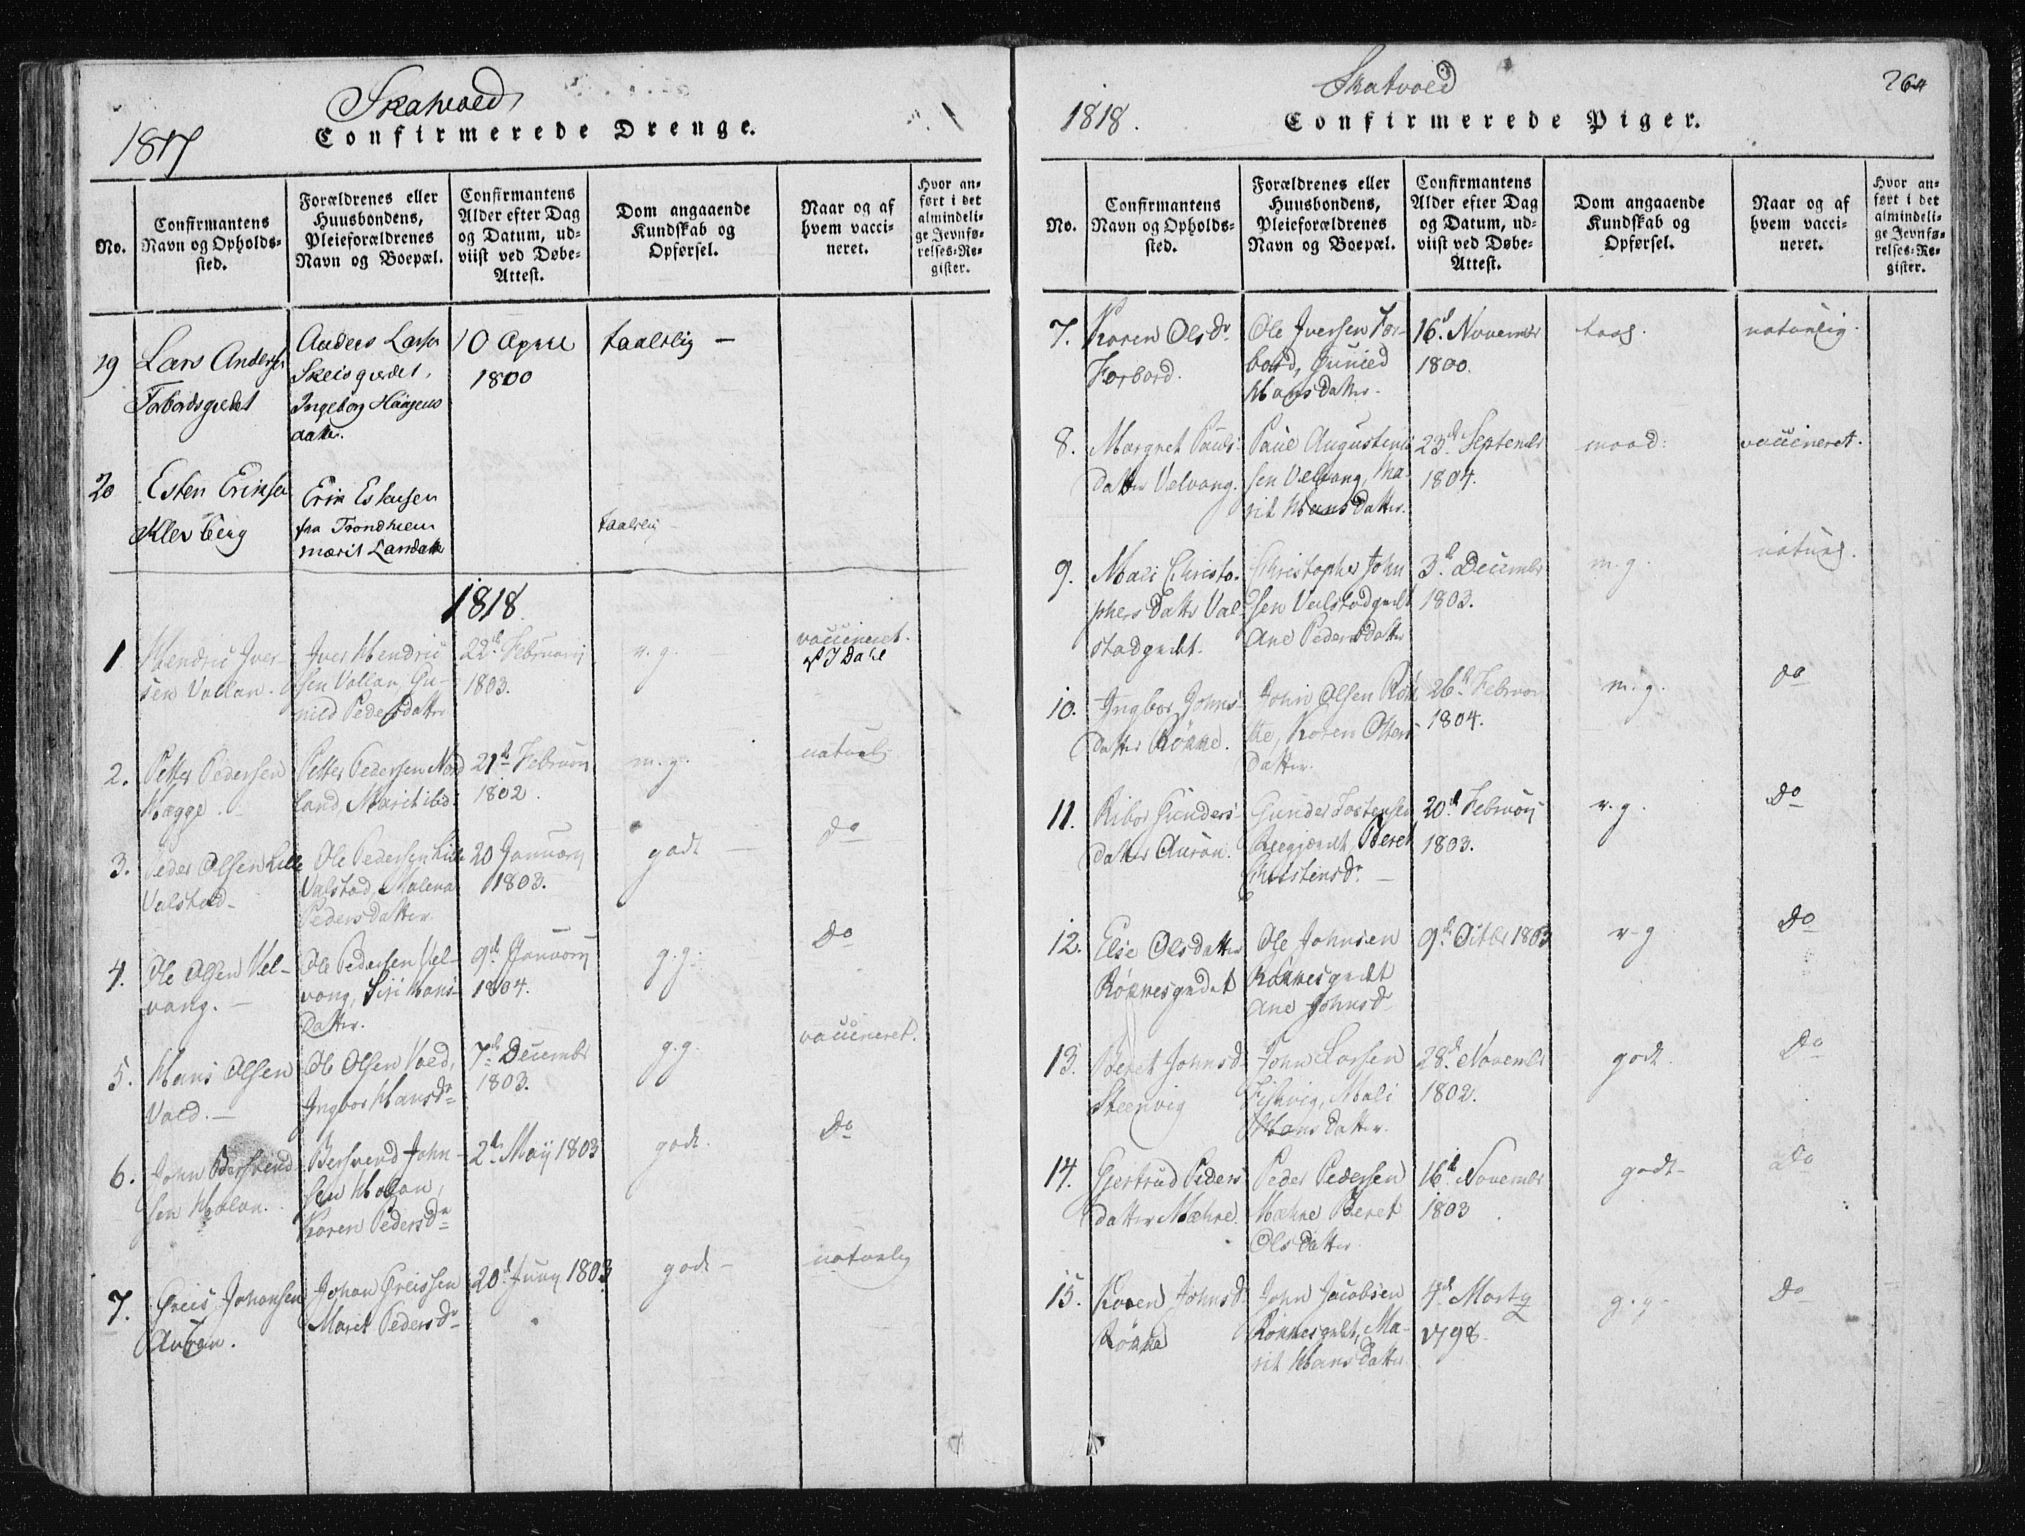 Skatvold
1817
Confirmerede Drenge.
No.
Confirmantens
Navn og Opholds-
sted.
Forældrenes eller
Huusbondens,
Pleieforældrenes
Navn og Boepæl.
Confirmantens
Alder efter Dag
og Datum, ud-
viist ved Døbe-
Attest.
Dom angaaende
Kundskab og
Opførsel.
Naar og af
hvem vacci-
neret.
Hvor an-
ført i det
almindeli-
ge Jevnfø-
relses-Re-
gister.
19
Lars Andersen
Forbordsgiedet
Anders Larsen
Skeisgiedet,
Ingeborg Haagens
datter.
10 April
1800
taalelig —
20
Esten Erinsen
Klevberg
Erin Estensen
fra Trondhiem
Marit Larsdatter
taalelig —
1818.
1
Hendric Iver-
sen Vollan.
Iver Hendric
sen Vollan, Gu-
nild Pedersdatter
22d Februarij
1803.
v. g. —
vaccineret.
af I Dahl
2.
Petter Pedersen
Hegge.
Petter Pedersen Nord
land, Marit ibid:
21d Februarij
1802.
m. g. —
naturl:
3.
Peder Olsen Lille
Valstad
Ole Pedersen Lille
Valstad, Malena
Pedersdatter.
20 Januarij
1803.
godt —
do
4.
Ole Olsen Vel-
vang. —
Ole Pedersen Vel-
vang, Siri Hans-
datter.
9d Januarij
1804.
g. g.
do
5.
Hans Olsen
Vold. —
Ole Olsen Vold,
Ingbor Hansdr
7d December
1803.
g. g.
vaccineret.
6.
John Bersvend
sen Holan.
Bersvend John-
sen Holan,
Karen Pedersdr
2d Maij 1803
godt.
do
7.
Greis Johansen
Auran.
Johan Greissen
Marit Pedersdr
20d Juny 1803
godt —
naturlig
Skatvold
264
1818.
Confirmerede Piger.
No.
Confirmantens
Navn og Opholds-
sted.
Forældrenes eller
Huusbondens,
Pleieforældrenes
Navn og Boepæl.
Confirmantens
Alder efter Dag
og Datum, ud-
viist ved Døbe-
Attest.
Dom angaaende
Kundskab og
Opførsel.
Naar og af
hvem vacci-
neret.
Hvor an-
ført i det
almindeli-
ge Jevnfø-
relses-Re-
gister.
7.
Karen Olsdr
Forbord.
Ole Iversen For-
bord, Gunild
Hansdatter.
16d November
1800.
taal.
naturlig.
8.
Margret Pauls
datter Velvang.
Paul Augustinus
sen Velvang, Ma-
rit Hansdatter.
23d September
1804.
maad:
vaccineret.
9.
Mali Christo-
phersdatter Val-
stadgiedt.
Christopher John
sen Valstadgiedt
Ane Pedersdatter
3d December
1803.
m. g.
naturl.
10.
Ingbor Johns-
datter Røkke.
John Olsen Røk
ke, Karen Otters-
datter.
26d Februar
1804.
m. g.
do
11.
Ribor Gunders-
datter Auran.
Gunder Tostensen
Beret
Christensdr. —
20d Februarij
1803.
v. g.
do
12.
Else Olsdatter
Røkkesgiedet
Ole Johnsen
Røkkesgiedt
Ane Johnsdr
9d Octbr 1803
v. g
do
13.
Beret Johnsd
Steenvig
John Larsen
Fiskvig, Mali
Hansdatter.
28d November
1802.
godt.
do
14.
Gjertrud Peders
datter Mæhre.
Peder Pedersen
Mæhre Beret
Olsdatter.
16d November
1803.
godt —
do
15.
Karen Johnsd
Røkke
John Jacobsen
Røkkesgiedt, Ma-
rit Hansdatter
4d Marty
1798.
g. g. —
do